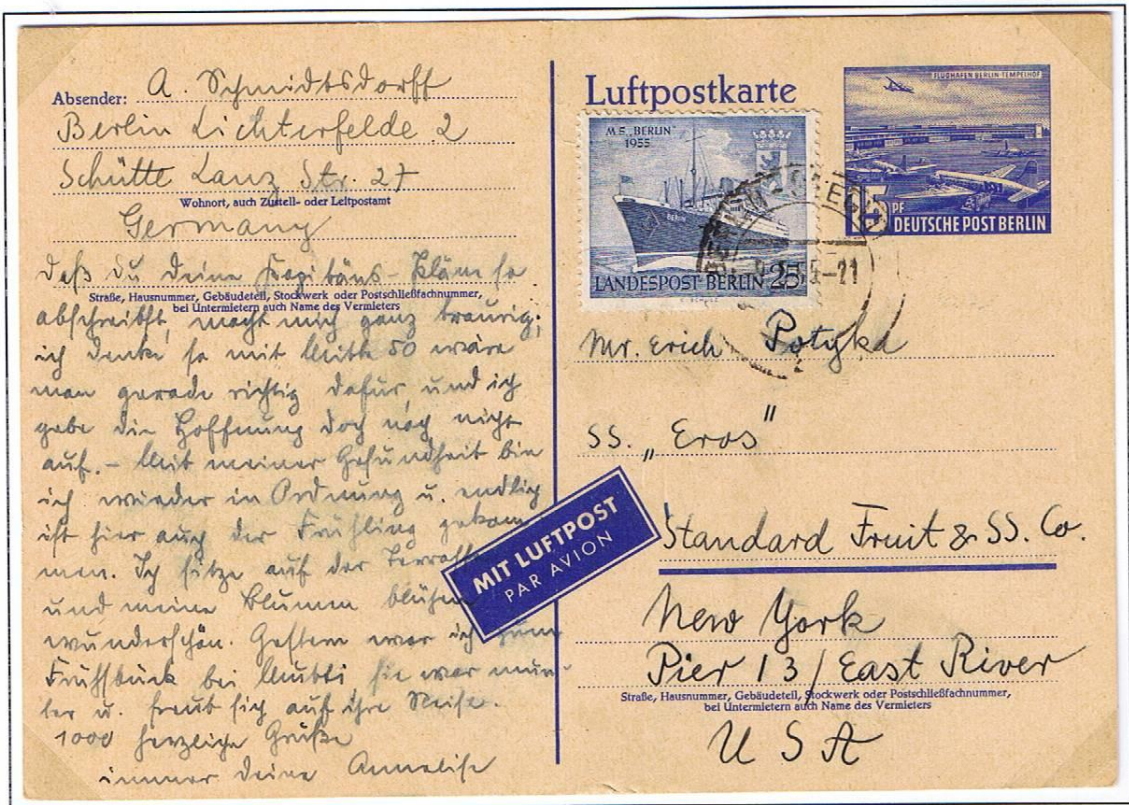 Absender: A. Schmidtsdorff
Berlin Lichterfelde 2
Schütte Lanz Str. 27
Wohnort, auch Zustell- oder Leitpostamt
Germany
daß du deine Kapitäns-Pläne so
Straße, Hausnummer, Gebäudeteil, Stockwerk oder Postschließfachnummer,
bei Untermietern auch Name des Vermieters
abschreibst, macht mich ganz traurig;
ich denke so mit Mitte 50 wäre
man gerade richtig dafür, und ich
gebe die Hoffnung doch noch nicht
auf. – Mit meiner Gesundheit bin
ich wieder in Ordnung u. endlich
ist hier auch der Frühling gekom-
men. Ich sitze auf der Terrasse
und meine Blumen blühen
wunderschön. Gestern war ich zum
Frühstück bei Mutti sie war mun-
ter u. freut sich auf ihre Reise.
1000 herzliche Grüße
immer deine Annelise
Luftpostkarte
FLUGHAFEN BERLIN-TEMPELHOF
15 PF
DEUTSCHE POST BERLIN
M.S. „BERLIN"
1955
BERLIN
LANDESPOST BERLIN 25
-21
Mr. Erich Potyka
SS. „Eros"
MIT LUFTPOST
PAR AVION
Standard Fruit & SS. Co.
New York
Pier 13 / East River
Straße, Hausnummer, Gebäudeteil, Stockwerk oder Postschließfachnummer,
bei Untermietern auch Name des Vermieters
USA